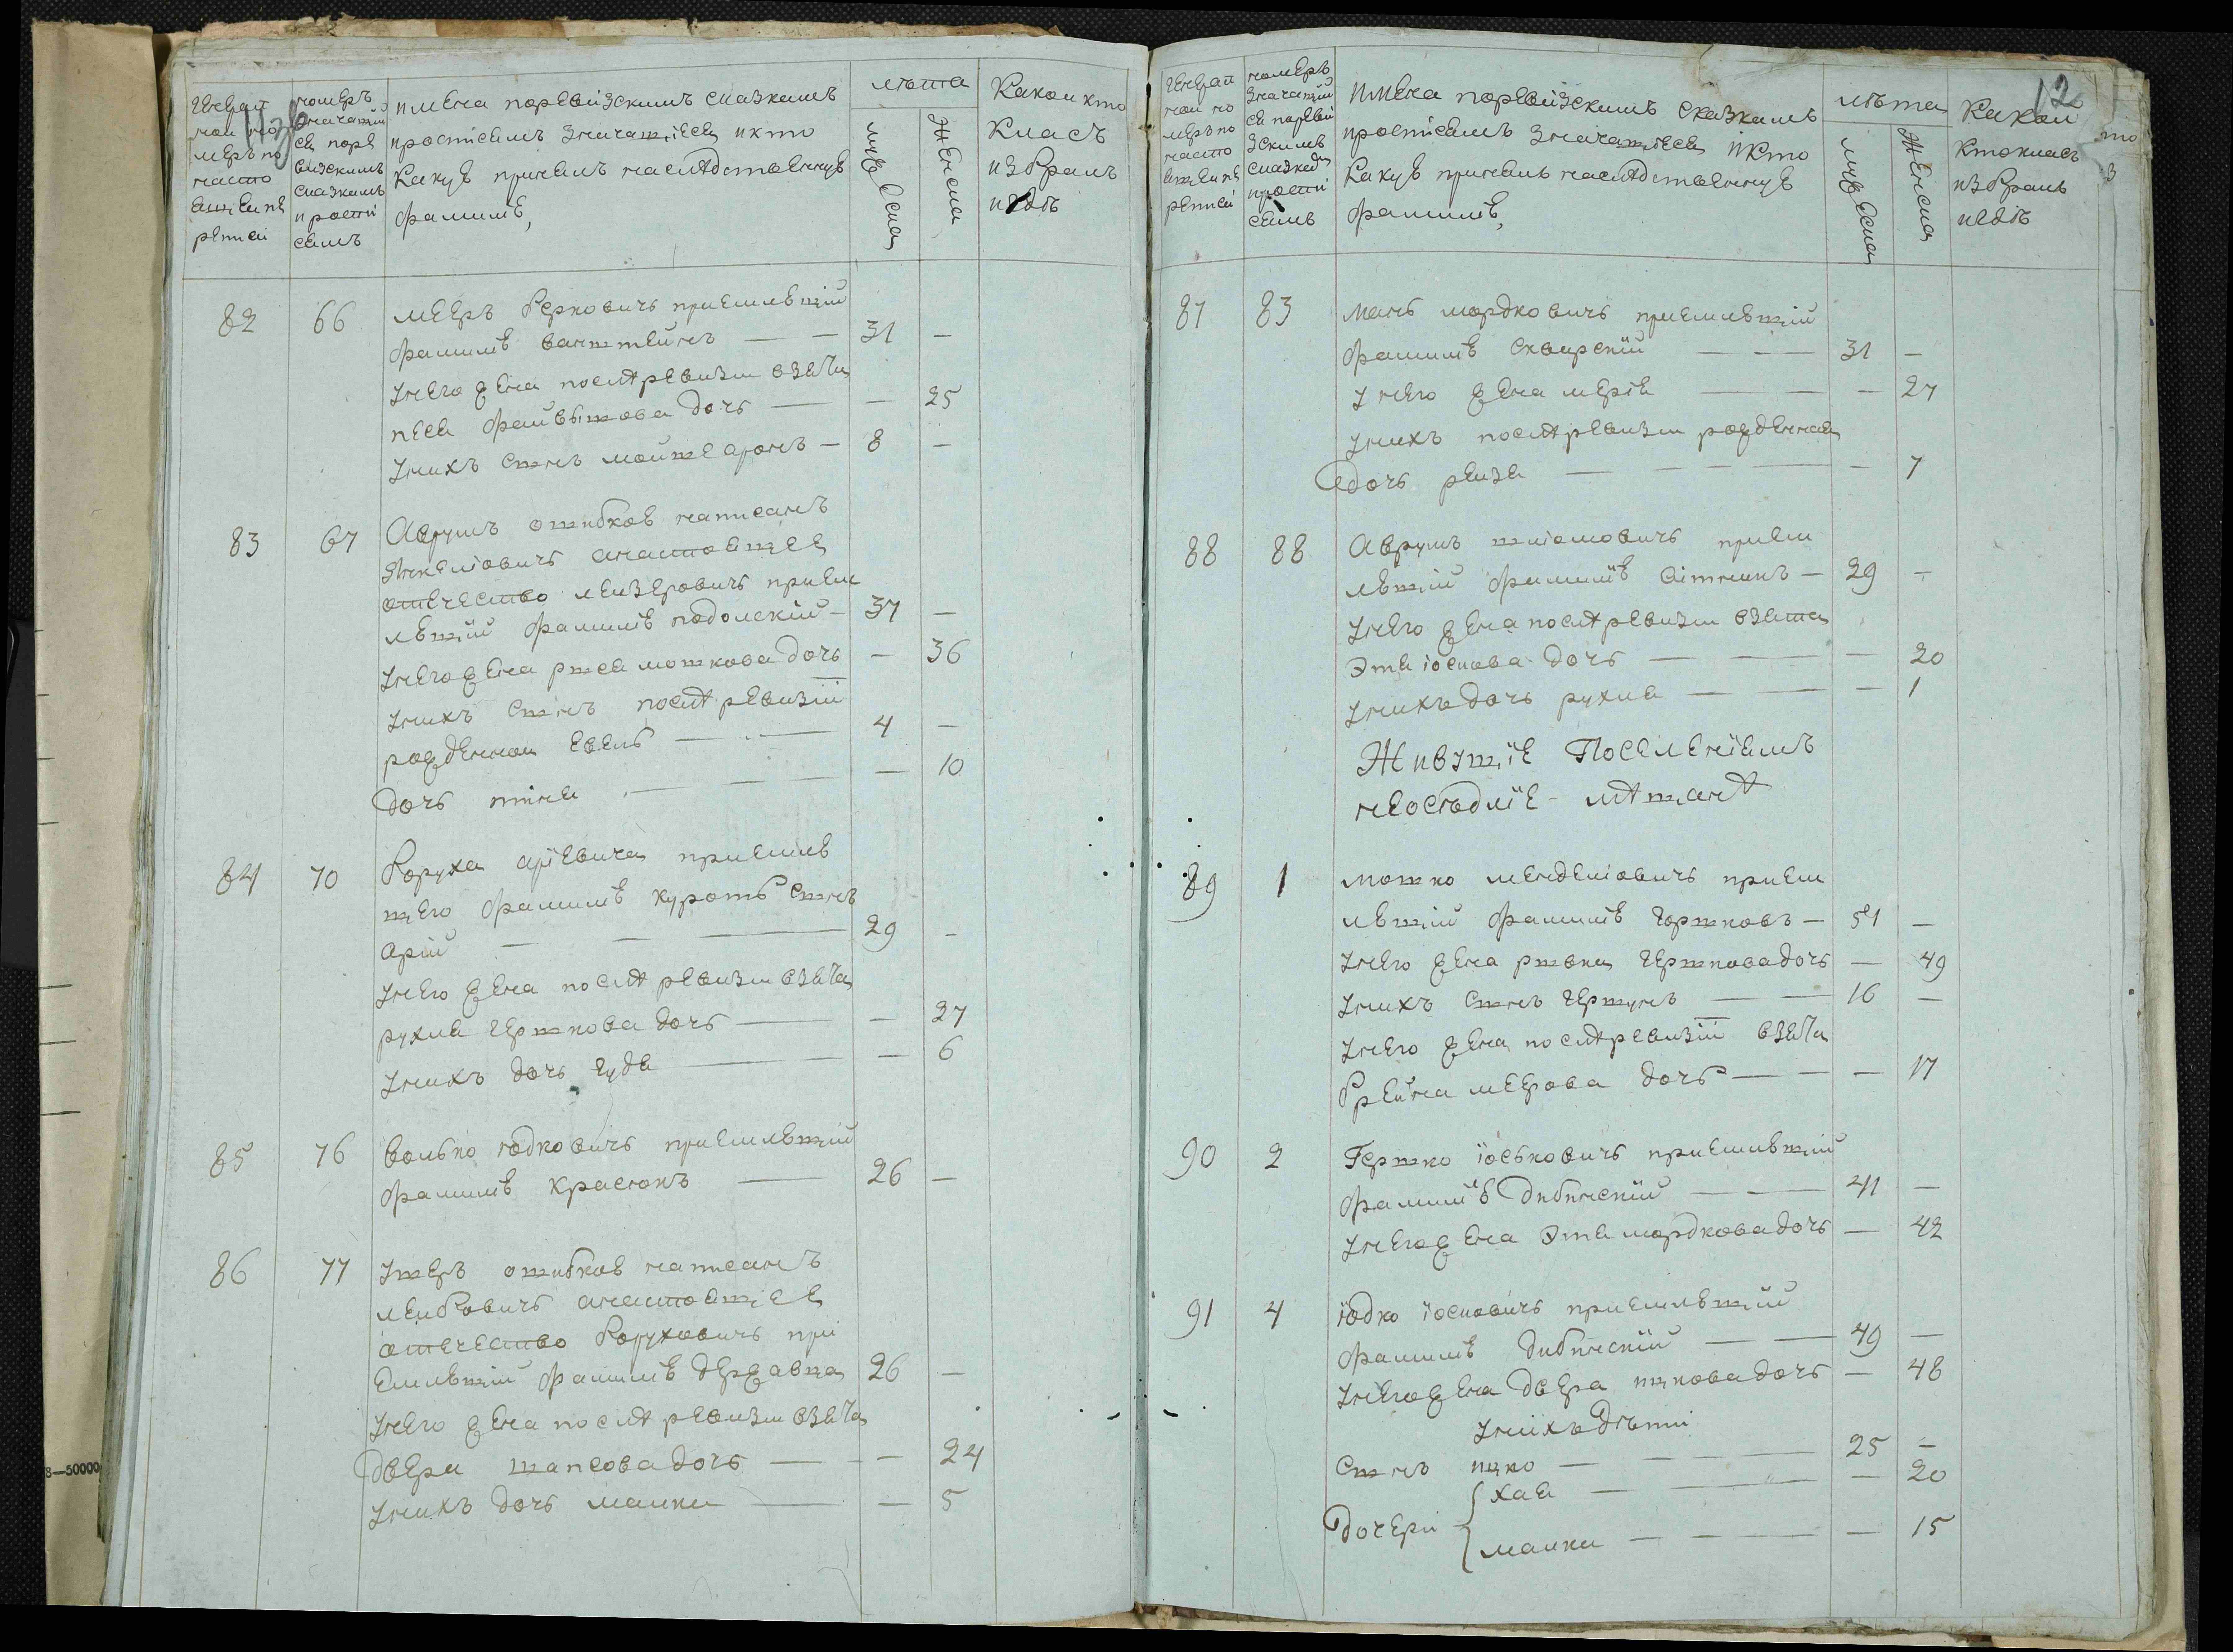 Генерал
ной но
меръ по
насто
ащеи пѣ
реписи
номеръ
значащий
ся поре
визскимъ
сказкамъ
и роспи
сямъ
имена поревизскимъ сказкамъ
иросписямъ значащиеся икто
Какую принялъ наслѣдственную
фамилию,
лѣта
мужеска
Женска
Какои кто
Класъ
избралъ
себѣ
82 66 мееръ берковичъ приемлевший
фамилию ваинштейнъ — — 31 —
унего жена послѣ ревизии взята
песа фаивышова дочь — — 25
унихъ сынъ моише аронъ — 8 —
83 67 Аврумъ ошибкою написанъ
Янкелювичъ анастоящее
отечество леизеровичъ прием
левший фамилию подолский — 37 —
унего жена рыся мошкова дочь — 36
унихъ сынъ послѣ ревизии
рожденнои евель — — 4 —
дочь тиня — — 10
84 70 Боруха ариевича приемлев
шего фамилию куротъ сынъ
арии — — — 29 —
унего жена послѣ ревизии взята
рухля гершкова дочь — — 27
унихъ дочь гудя — — 6
85 76 волько юдковичъ приемлевший
фамилию красюкъ — 26 —
86 77 ушеръ ошибкою написанъ
леибовичъ анастоящее
отечество Боруховичъ при
емлевший фамилию державца 26 —
унего жена послѣ ревизии взята
двера шапсова дочь — — 24
унихъ дочь малка — — 5
12
Генерал
ной но
меръ по
насто
ащеи пѣ
реписи
номеръ
значащий
ся поревй
зскимъ
сказкамъ
ироспи
сямъ
имена поревизскимъ сказкамъ
иросписямъ значащиеся икто
Какую принялъ наслѣдственную
фамилию,
лѣта
мужеска
Женска
Какои
ктокласъ
избралъ
себѣ
87 83 манъ мордковичъ приемлевший
фамилию сквирский — — — 31 —
унего жена мерия — — — 27
унихъ послѣ ревизии рожденная
дочь реиза — — — — 7
88 88 Аврумъ шлиомовичъ прием
левший фамилию ситникъ — 29 —
унего жена послѣ ревизии взята
Этя иоськова дочь — — — 20
унихъ дочь рухля — — — 1
Живущие Поселениямъ
неосѣдлие мѣщанѣ
89 1 мошко менделиовичъ прием
левший фамилию горшковъ — 51 —
унего жена рывка гершкова дочь — 49
унихъ сынъ гершунъ — — 16 —
унего жена послѣ ревизии взята
Брейна меерова дочь — — — 17
90 2 Гершко иоськовичъ приемлевший
фамилию Дибинский — — 41 —
унего жена Этя мордкова дочь — 42
91 4 юдко иосиовичъ приемлевший
фамилию дибинский — — 49 —
унего жена двера ицкова дочь — 48
унихъ дѣти
сынъ ицко — — — 25 —
хая — — — 20
Дочери
малка — — — 15